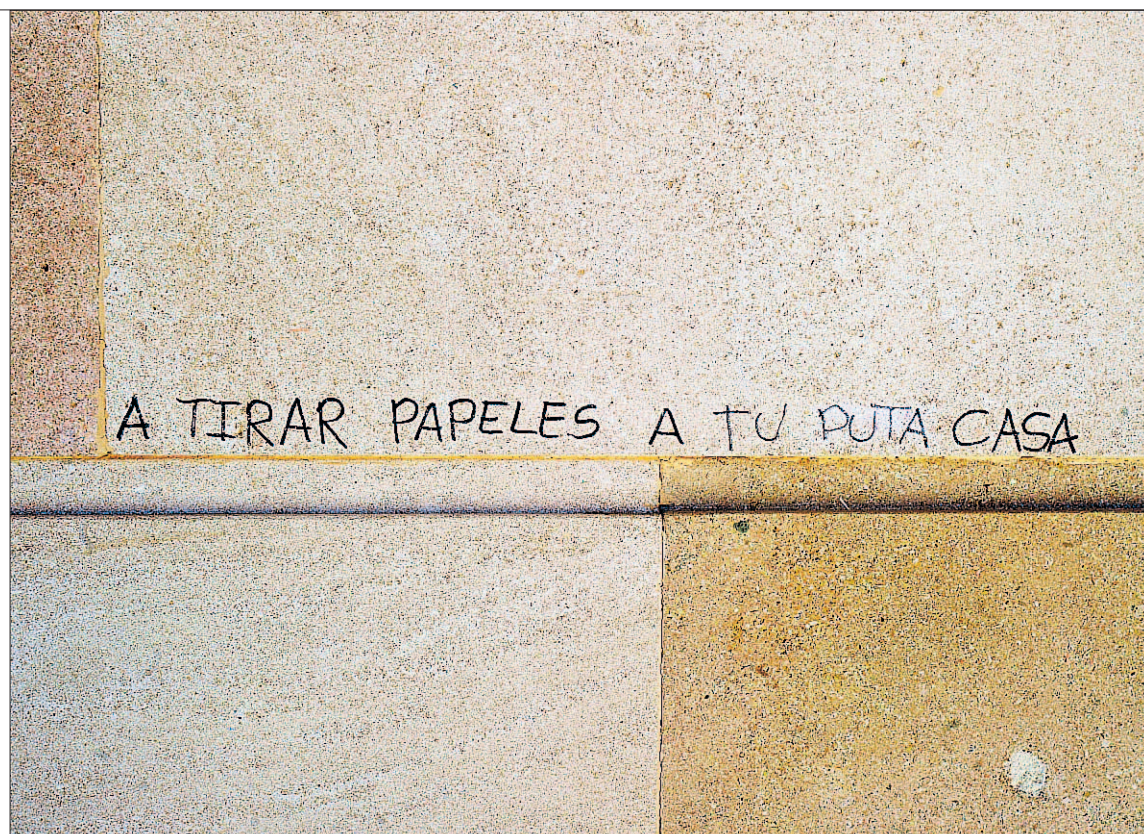 A TIRAR PAPELES A TU PUTA CASA